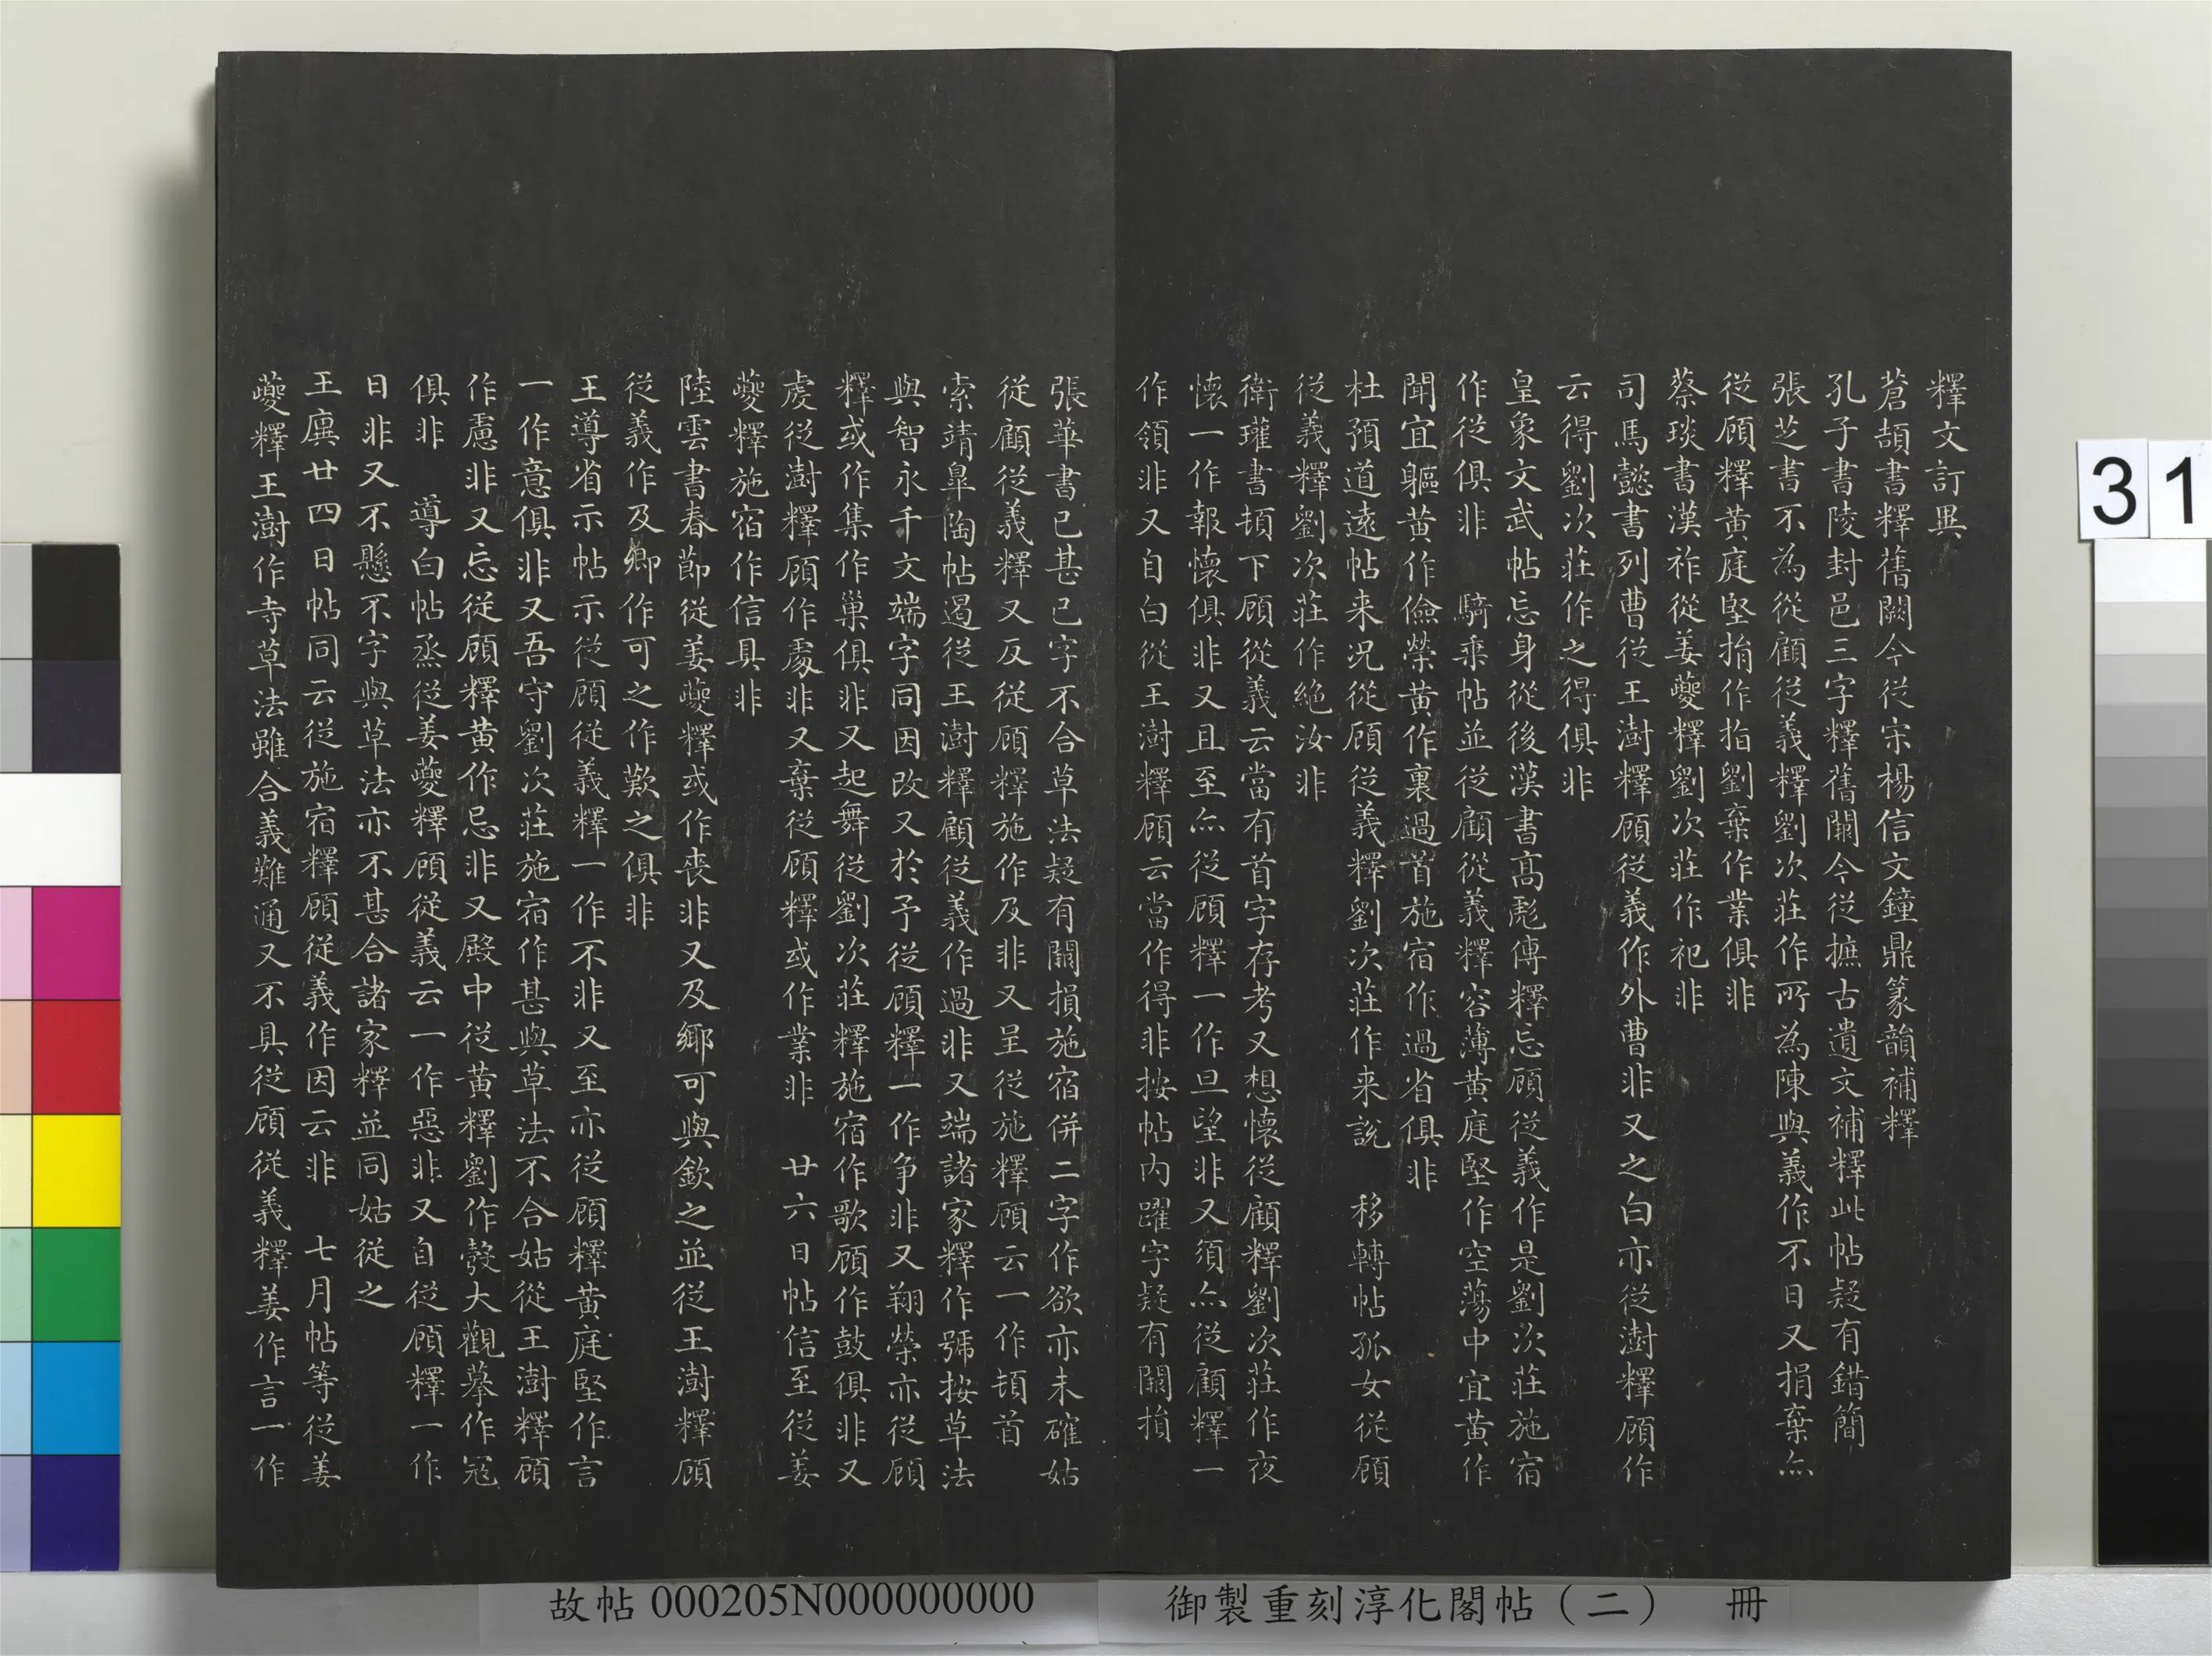 釋文訂異
蒼頡書釋舊闕今從宋楊信文鐘鼎篆韻補釋
孔子書陵封邑三字釋舊闕今從摭古遺文補釋此帖疑有錯簡
張芝書不為從顧從義釋劉次莊作所為陳與義作不日又捐棄亦
從顧釋黃庭堅捐作指劉棄作業俱非
蔡琰書漢祚從姜夔釋劉次莊作祀非
司馬懿書列曹從王澍釋顧從義作外曹非又之白亦從澍釋顧作
云得劉次莊作之得俱非
皇象文武帖忘身從後漢書高彪傳釋忘顧從義作是劉次莊施宿
作從俱非　騎乘帖並從顧從義釋容薄黃庭堅作空蕩中宜黃作
聞宜軀黃作儉榮黃作裏過首施宿作過省俱非
杜預道遠帖来况從顧從義釋劉次莊作来說　移轉帖孤女從顧
從義釋劉次莊作絶汝非
衛瓘書頓下顧從義云當有首字存考又想懷從顧釋劉次莊作夜
懷一作報懷俱非又且至亦從顧釋一作旦望非又須亦從顧釋一
作領非又自白從王澍釋顧云當作得非按帖内躍字疑有闕損
張華書已甚已字不合草法疑有闕損施宿併二字作欲亦未確姑
從顧從義釋又反從顧釋施作及非又呈從施釋顧云一作頓首
索靖皐陶帖遏從王澍釋顧從義作過非又端諸家釋作號按草法
與智永千文端字同因改又於予從顧釋一作争非又翔榮亦從顧
釋或作集作巢俱非又起舞從劉次莊釋施宿作歌顧作鼓俱非又
虔從澍釋顧作處非又棄從顧釋或作業非　廿六日帖信至從姜
夔釋施宿作信具非
陸雲書春節從姜夔釋或作喪非又及鄉可與欽之並從王澍釋顧
從義作及卿作可之作歎之俱非
王導省示帖示從顧從義釋一作不非又至亦從顧釋黃庭堅作言
一作意俱非又吾守劉次莊施宿作甚與草法不合姑從王澍釋顧
作慮非又忘從顧釋黃作忌非又殿中從黃釋劉作發大觀摹作冠
俱非　導白帖烝從姜夔釋顧從義云一作惡非又自從顧釋一作
日非又不懸不字與草法亦不甚合諸家釋並同姑從之
王廙廿四日帖同云從施宿釋顧從義作因云非　七月帖等從姜
夔釋王澍作寺草法雖合義難通又不具從顧從義釋姜作言一作
31
故帖 000205N000000000
御製重刻淳化閣帖（二）　冊